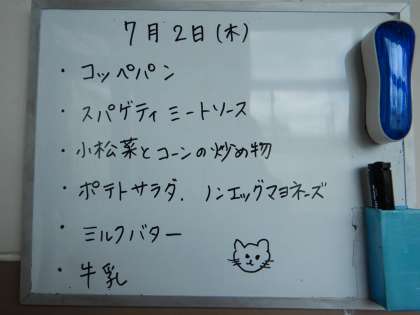 7月2日(木)
・コッペパン
・スパゲティミートソース
・小松菜とコーンの炒め物
・ポテトサラダ.ノンエッグマヨネーズ
・ミルクバター
・牛乳